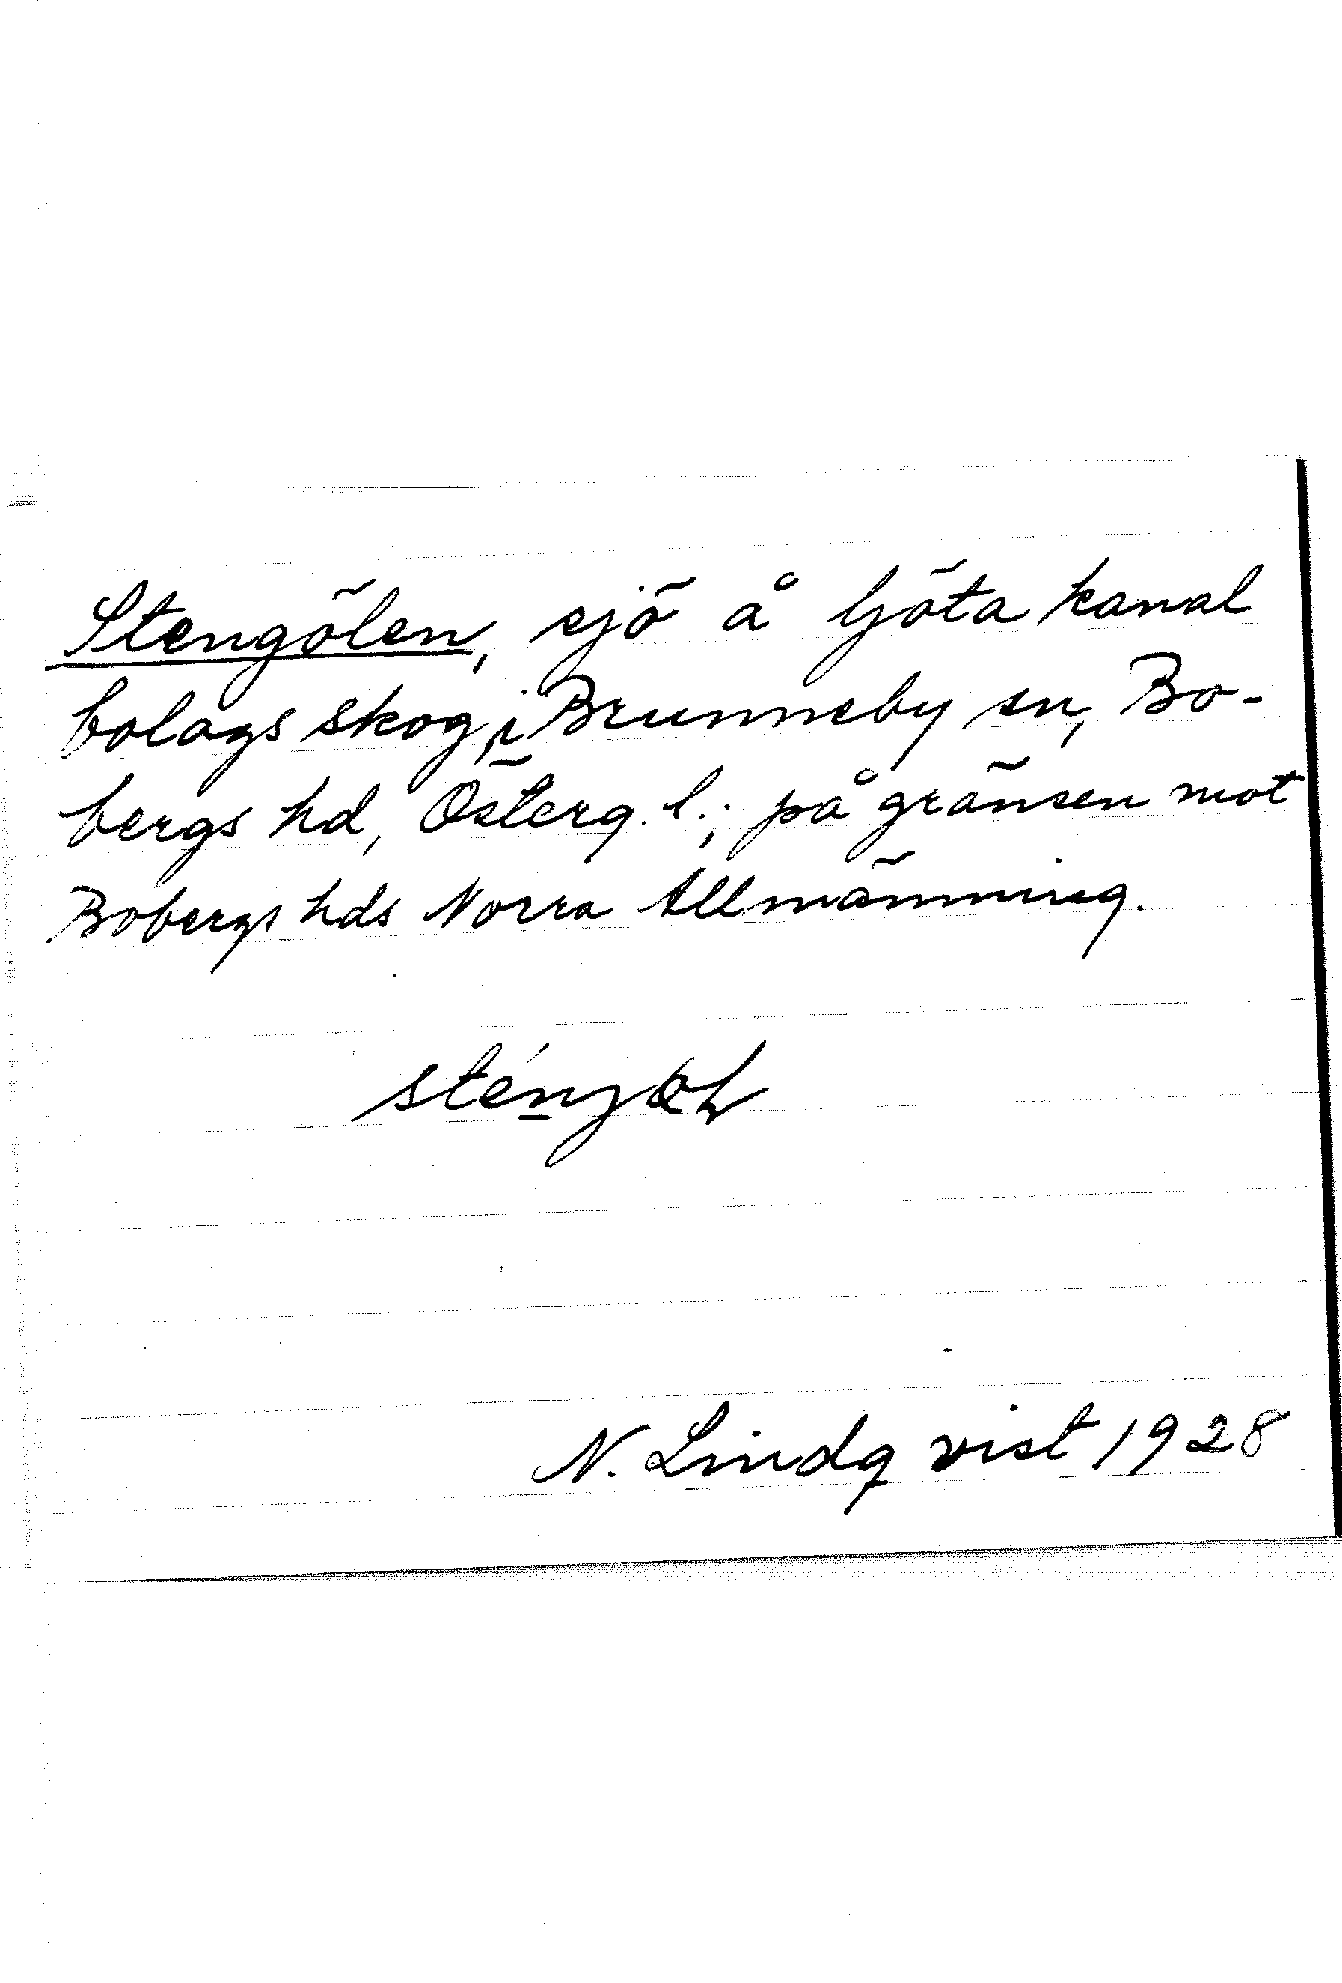 Stengölen, sjö å Göta kanal
bolags skog, i Brunneby sn, Bo-
bergs hd, Österg. l.; på gränsen mot
Bobergs hds Norra Allmänning.
N. Lindqvist 1928